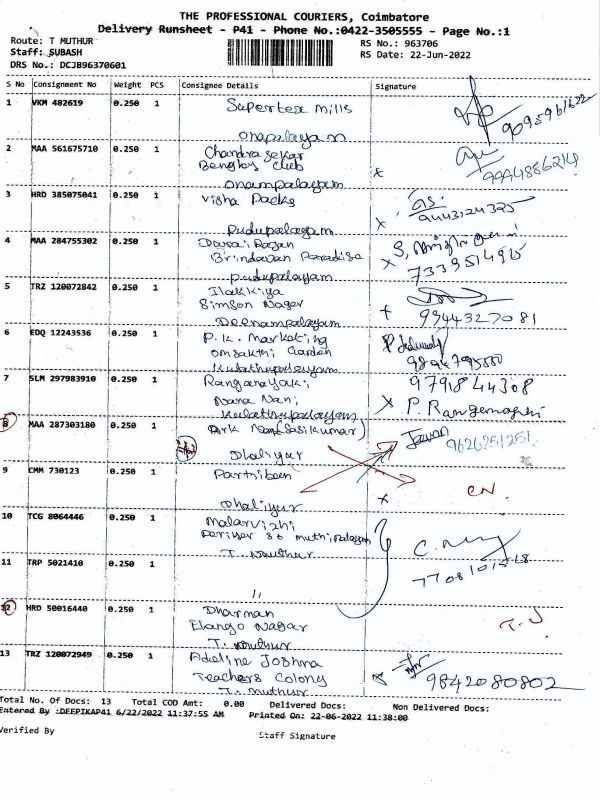 THE PROFESSIONAL COURIERS, Coimbatore
Delivery Runsheet - P41 - Phone No.:0422-3505555 - Page No.:1
Route: T MUTHUR
RS No.: 963706
Staff: SUBASH
RS Date: 22-Jun-2022
DRS No.: DCJB96370601
S No Consignment No Weight PCS Consignee Details Signature
1 VKM 482619 0.250 1 Supertex mills
Onapalayam
9095961622
2 MAA 561675710 0.250 1 Chandra sekar
Club
onampalayam
9994886214
3 HRD 385075041 0.250 1 Visha Packs
Pudupalayam
9443124325
4 MAA 284755302 0.250 1 Durai Rajan
Brindavan Paradise
pudupalayam
7339514915
5 TRZ 120072842 0.250 1 Ilakkiya
Simson Nagar
Deenampalayam
9944327081
6 EDQ 12243536 0.250 1 P.K. Marketing
Omsakthi Garden
Kulathupalayam
7 SLM 297983910 0.250 1 Ranganayaki
Nana Nani
Kulathupalayam
9791844308
8 MAA 287303180 0.250 1 (Sasikumar)
Dhaliyur
9626251251
9 CMM 730123 0.250 1
Dhaliyur
CN.
10 TCG 8064446 0.250 1 Malarvizhi
T. Muthur
11 TRP 5021410 0.250 1
"
12 HRD 50016440 0.250 1 Dharman
Elango Nagar
T. Muthur
13 TRZ 120072949 0.250 1 Adeline Joshna
Teachers Colony
T. Muthur
9842080802
Total No. Of Docs: 13 Total COD Amt: 0.00 Delivered Docs: Non Delivered Docs:
Entered By :DEEPIKAP41 6/22/2022 11:37:55 AM Printed On: 22-06-2022 11:38:00
Verified By
Staff Signature